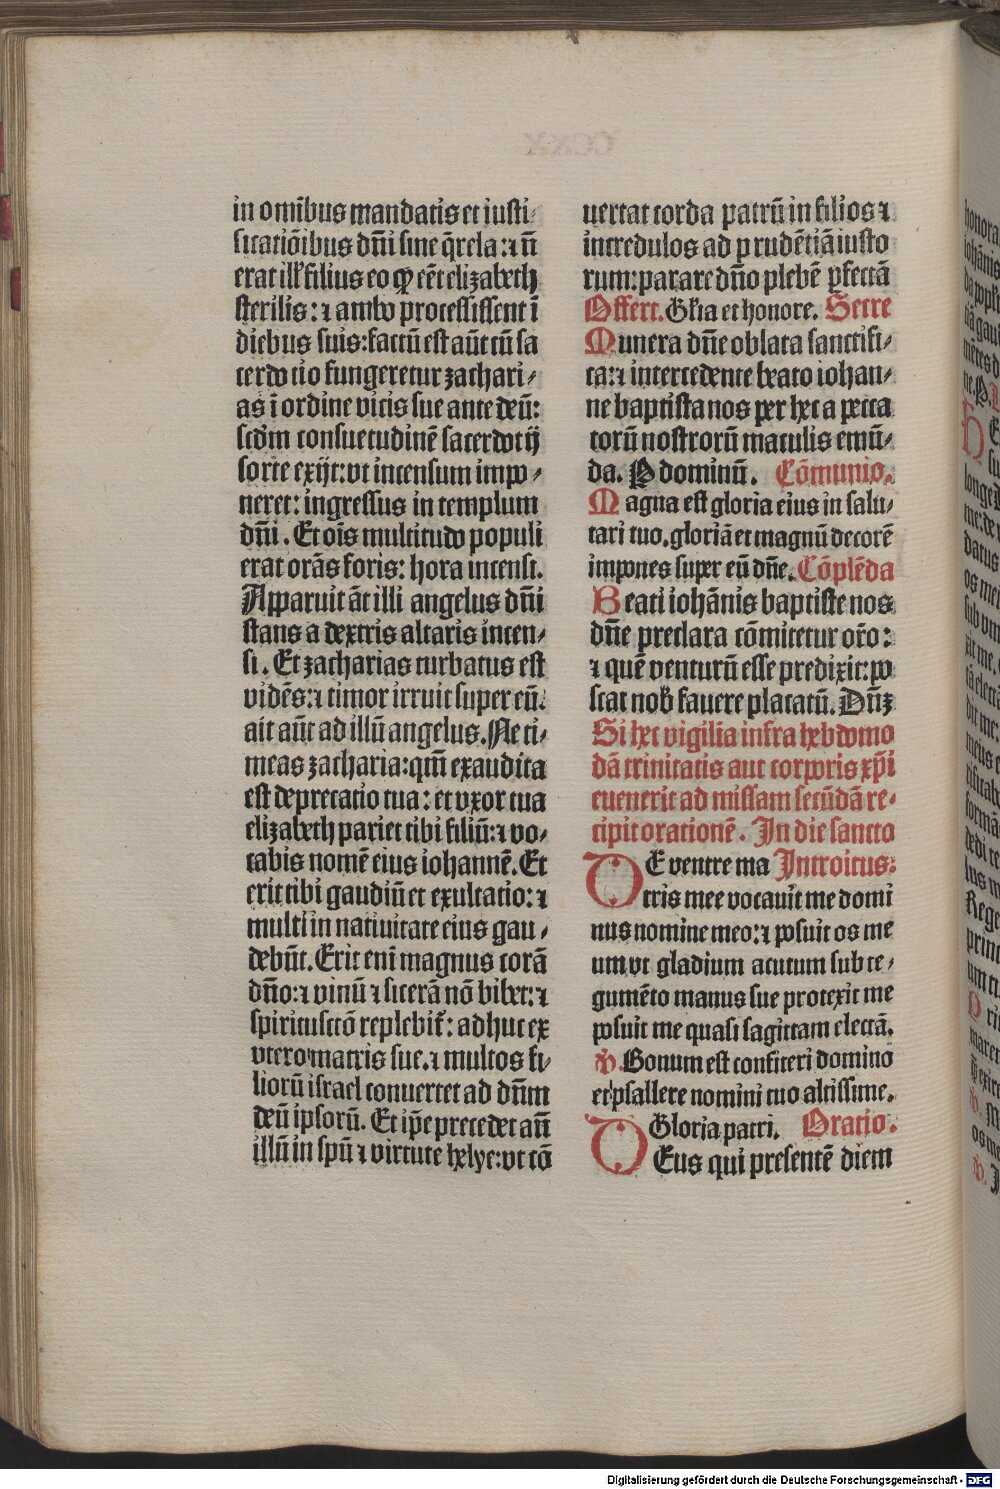 in om̄ibus mandatis et iusti⸗
ficatiōibus dn̄i sine q̄rela: ⁊ n̄
erat ill' filius eo ꝙ eēt elizabeth
sterilis: ⁊ ambo processissent ī
diebus suis: factū est aūt cū sa
cerdotio fungeretur zachari⸗
as ī ordine vicis sue ante deū:
scd̄m consuetudinē sacerdotij
sorte exijt: vt incensum impo⸗
neret: ingressus in templum
dn̄i. Et oīs multitudo populi
erat orās foris: hora incensi.
Apparuit āt illi angelus dn̄i
stans a dextris altaris incen⸗
si. Et zacharias turbatus est
vidēs: ⁊ timor irruit super eū.
ait aūt ad illū angelus. Ne ti⸗
meas zacharia: qm̄ exaudita
est deprecatio tua: et vxor tua
elizabeth pariet tibi filiū: ⁊ vo⸗
cabis nomē eius iohannē. Et
erit tibi gaudiū et exultatio: ⁊
multi in natiuitate eius gau⸗
debūt. Erit eni magnus corā
dn̄o: ⁊ vinū ⁊ sicerā nō bibet: ⁊
spiritusctō replebit̄: adhuc ex
vtero matris sue. ⁊ multos fi⸗
liorū israel conuertet ad dn̄m
deū ipsorū. Et ip̄e precedet an̄
illū in spū ⁊ virtute helye: vt cō
uertat corda patrū in filios ⁊
incredulos ad prudētiā iusto
rum: parare dn̄o plebē ꝑfectā
Offert. Gl'ia et honore. Secre
Munera dn̄e oblata sanctifi⸗
ca: ⁊ intercedente beato iohan⸗
ne baptista nos per hec a pecca
torū nostrorū maculis emū⸗
da. P dominū. Cōmunio.
Magna est gloria eius in salu⸗
tari tuo. gloriā et magnū decorē
impones super eū dn̄e. Cōplēda
Beati iohānis baptiste nos
dn̄e preclara cōmitetur or̄o:
⁊ quē venturū esse predixit: po
scat nob' fauere placatū. Dn̄ꝫ
Si hec vigilia infra hebdomo
dā trinitatis aut corporis xp̄i
euenerit ad missam secūdā re⸗
cipit orationē. In die sancto
DE ventre ma Introitus:
tris mee vocauit me domi
nus nomine meo: ⁊ posuit os me
um vt gladium acutum sub te⸗
gumēto manus sue protexit me
posuit me quasi sagittam electā.
v̄. Bonum est confiteri domino
et psallere nomini tuo altissime.
Gloria patri. Oratio.
DEus qui presentē diem
Digitalisierung gefördert durch die Deutsche Forschungsgemeinschaft - DFG